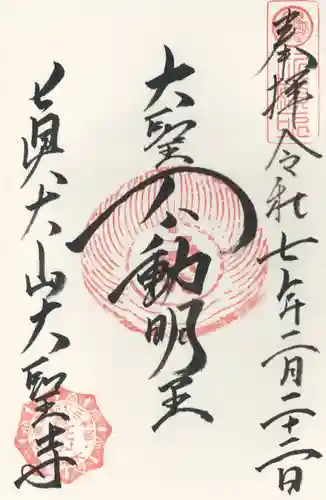 奉拝 令和七年二月二十二日
大聖不動明王
真大山大聖寺